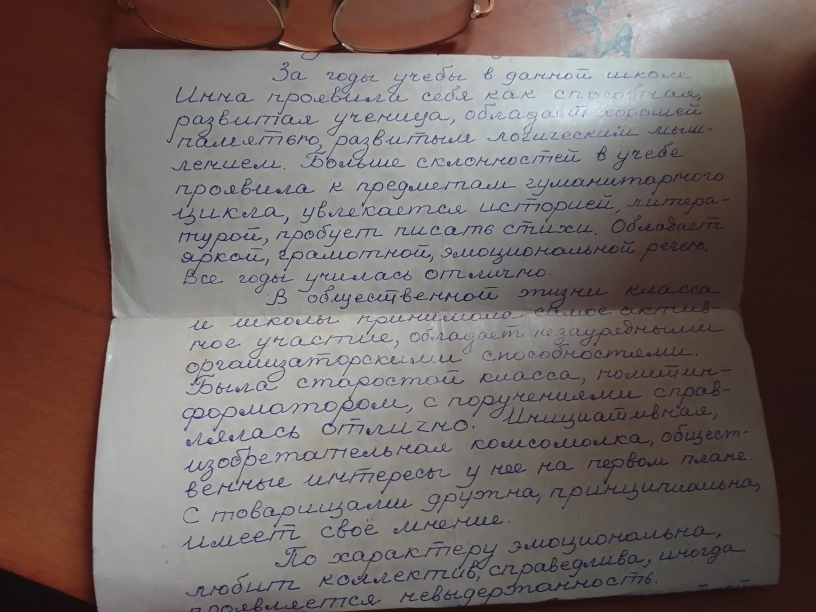 За годы учебы в данной школе
Инна проявила себя как способная,
развитая ученица, обладает хорошей
памятью, развитым логическим мыш-
лением. Больше склонностей в учебе
проявила к предметам гуманитарного
цикла, увлекается историей, литера-
турой, пробует писать стихи. Обладает
яркой, грамотной, эмоциональной речью.
Все годы училась отлично.
В общественной жизни класса
и школы принимала самое актив-
ное участие, обладает незаурядными
организаторскими способностями.
Была старостой класса, политин-
форматором, с поручениями справ-
лялась отлично. Инициативная,
изобретательная комсомолка, общест-
венные интересы у нее на первом плане.
С товарищами дружна, принципиальна,
имеет своё мнение.
По характеру эмоциональна,
любит коллектив, справедлива, иногда
проявляется невыдержанность.